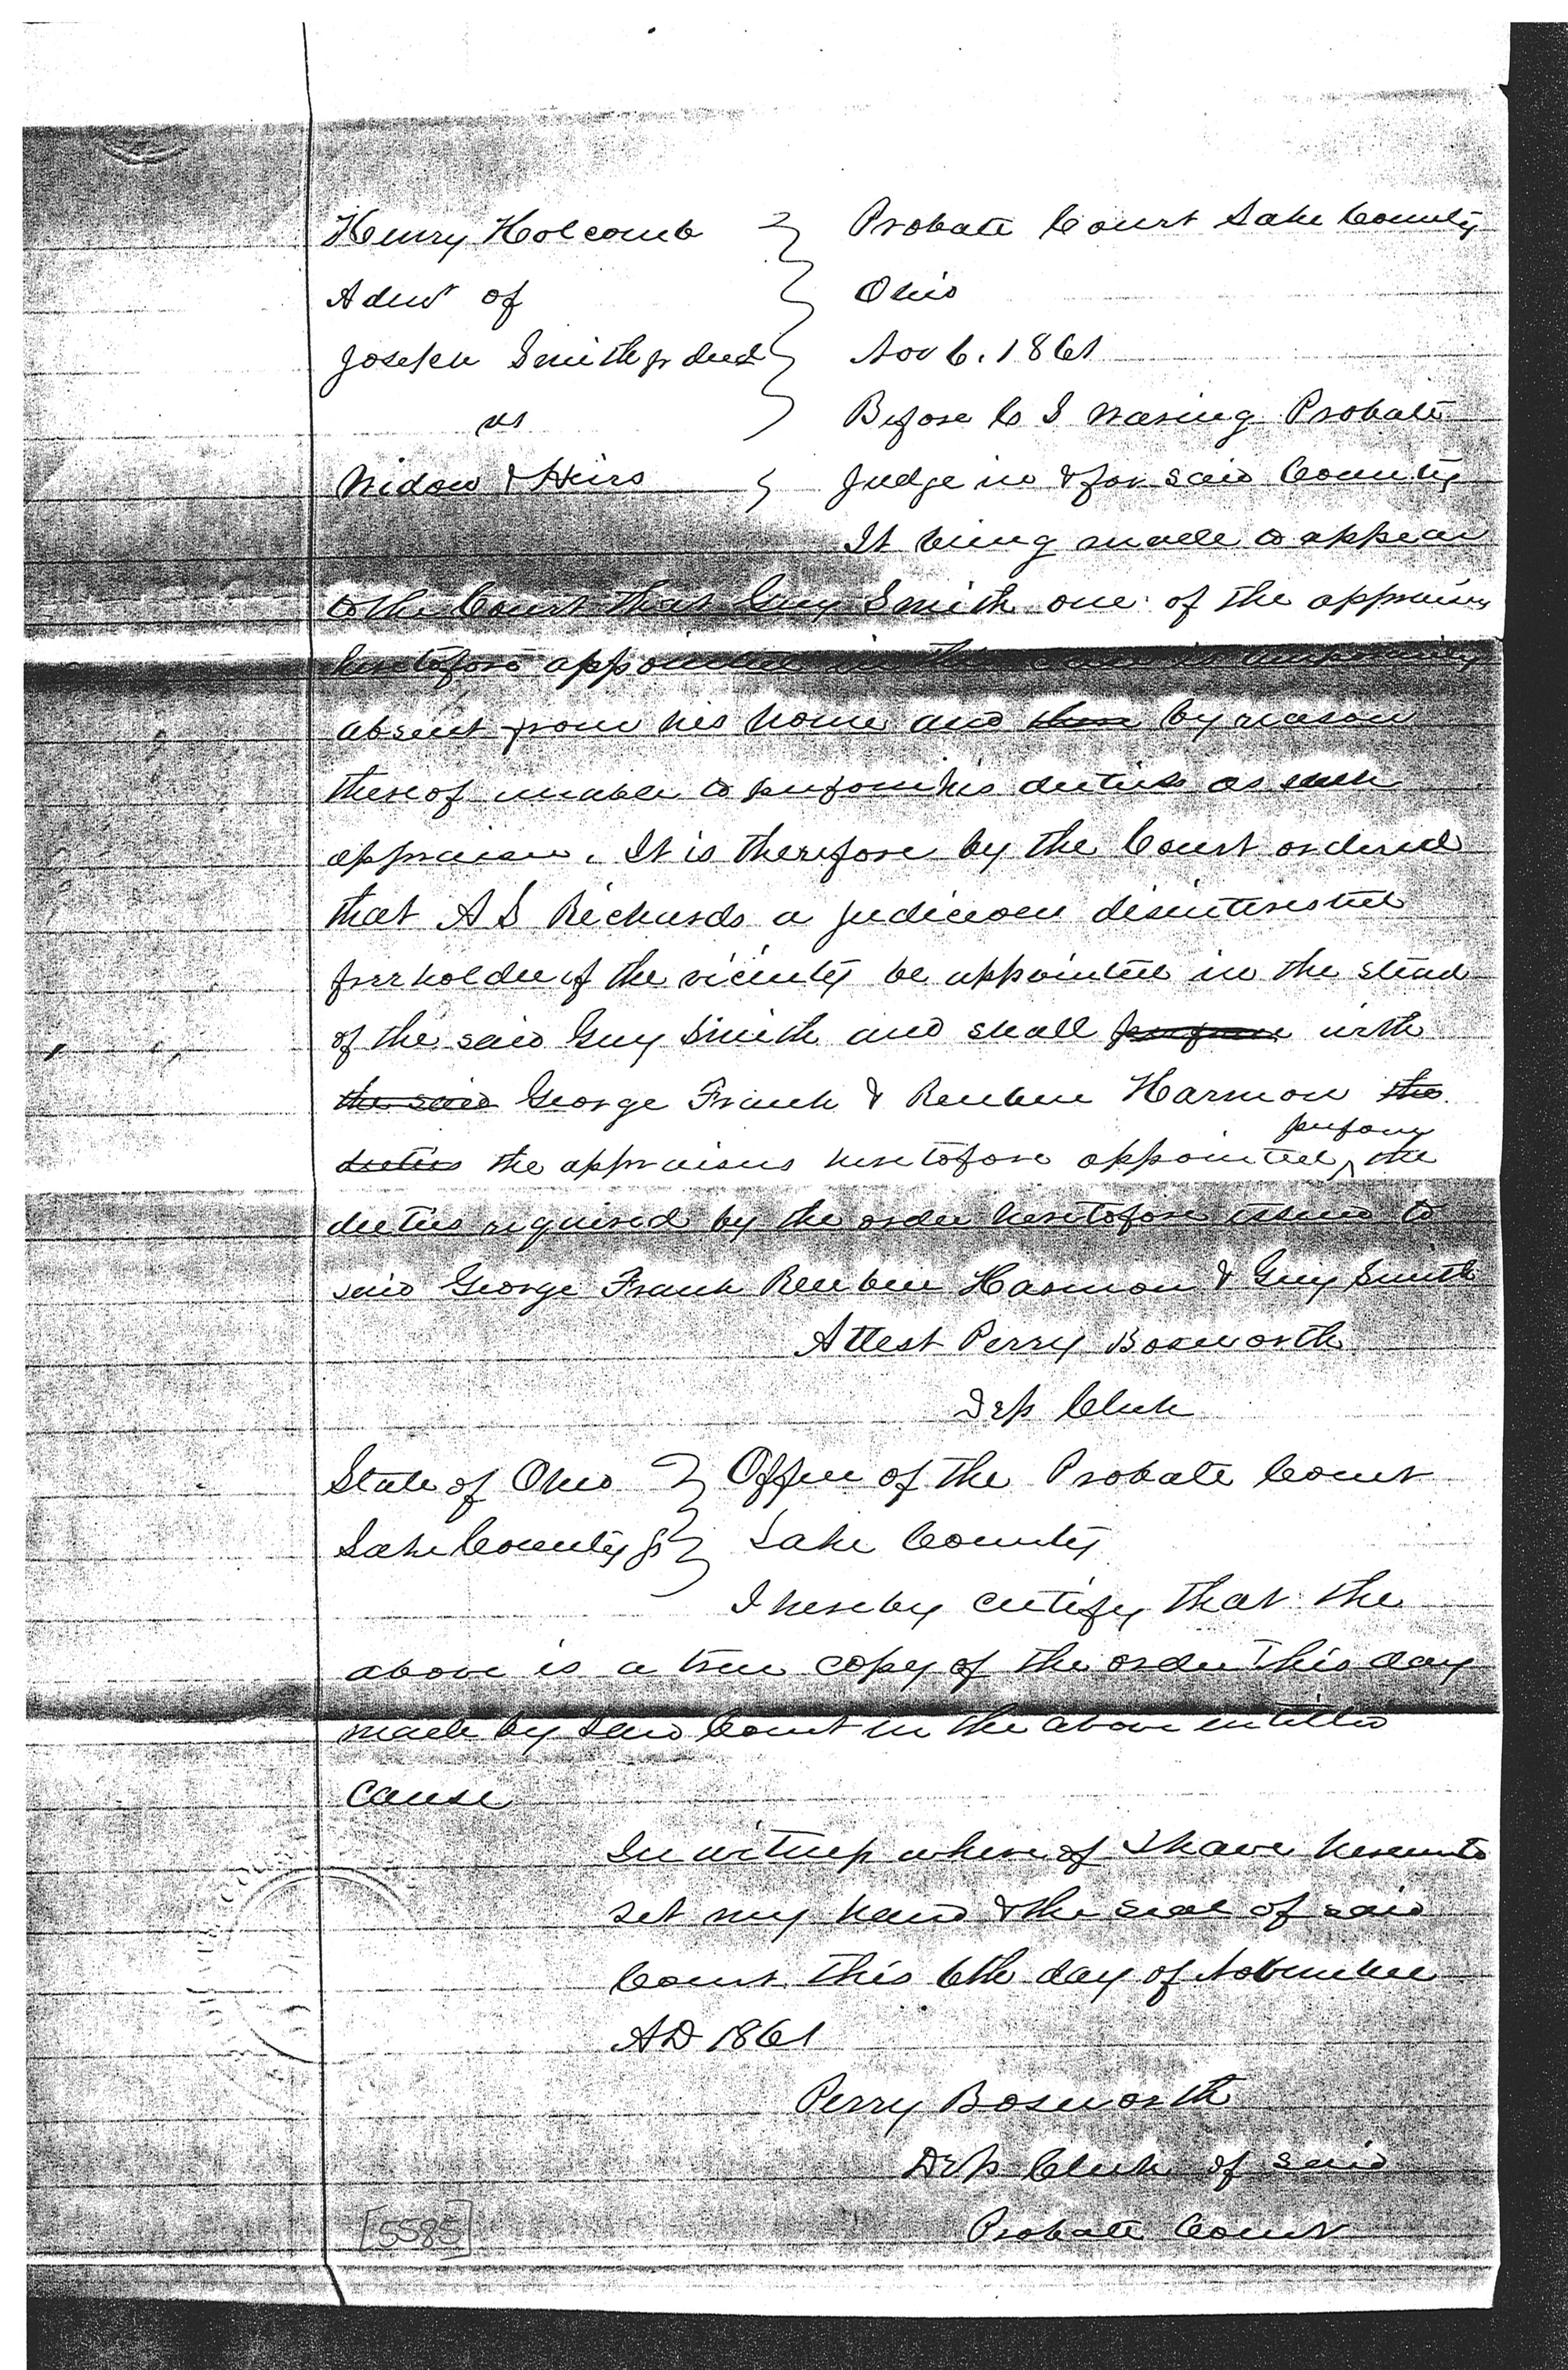 Henry Holcomb } Probate Court Lake County
Admr of } Ohio
Joseph Smith jr decd } Nov 6. 1861
vs } Before C S Probate
Widow & Heirs } Judge in & for said County
It being made to appear
to the Court that Guy Smith one of the appraisers
heretofore appointed in this case is temporarily
absent from his home and by reason
thereof unable to perform his duties as such
appraiser. It is therefore by the Court ordered
that A S Richards a judicious disinterested
freeholder of the vicinity be appointed in the stead
of the said Guy Smith and shall perform with
the said George Frank & Reuben Harmon the
perform
duties the appraisers heretofore appointed ^ the
duties required by the order heretofore issued to
said George Frank Reuben Harmon & Guy Smith
Attest Perry Bosworth
Dep Clerk
State of Ohio } Office of the Probate Court
Lake County ss } Lake County
I hereby certify that the
above is a true copy of the order this day
made by said Court in the above entitled
cause
In witness where of I have hereunto
set my hand & the seal of said
Court this 6th day of November
AD 1861
Perry Bosworth
Dep Clerk of said
Probate Court
[5585]